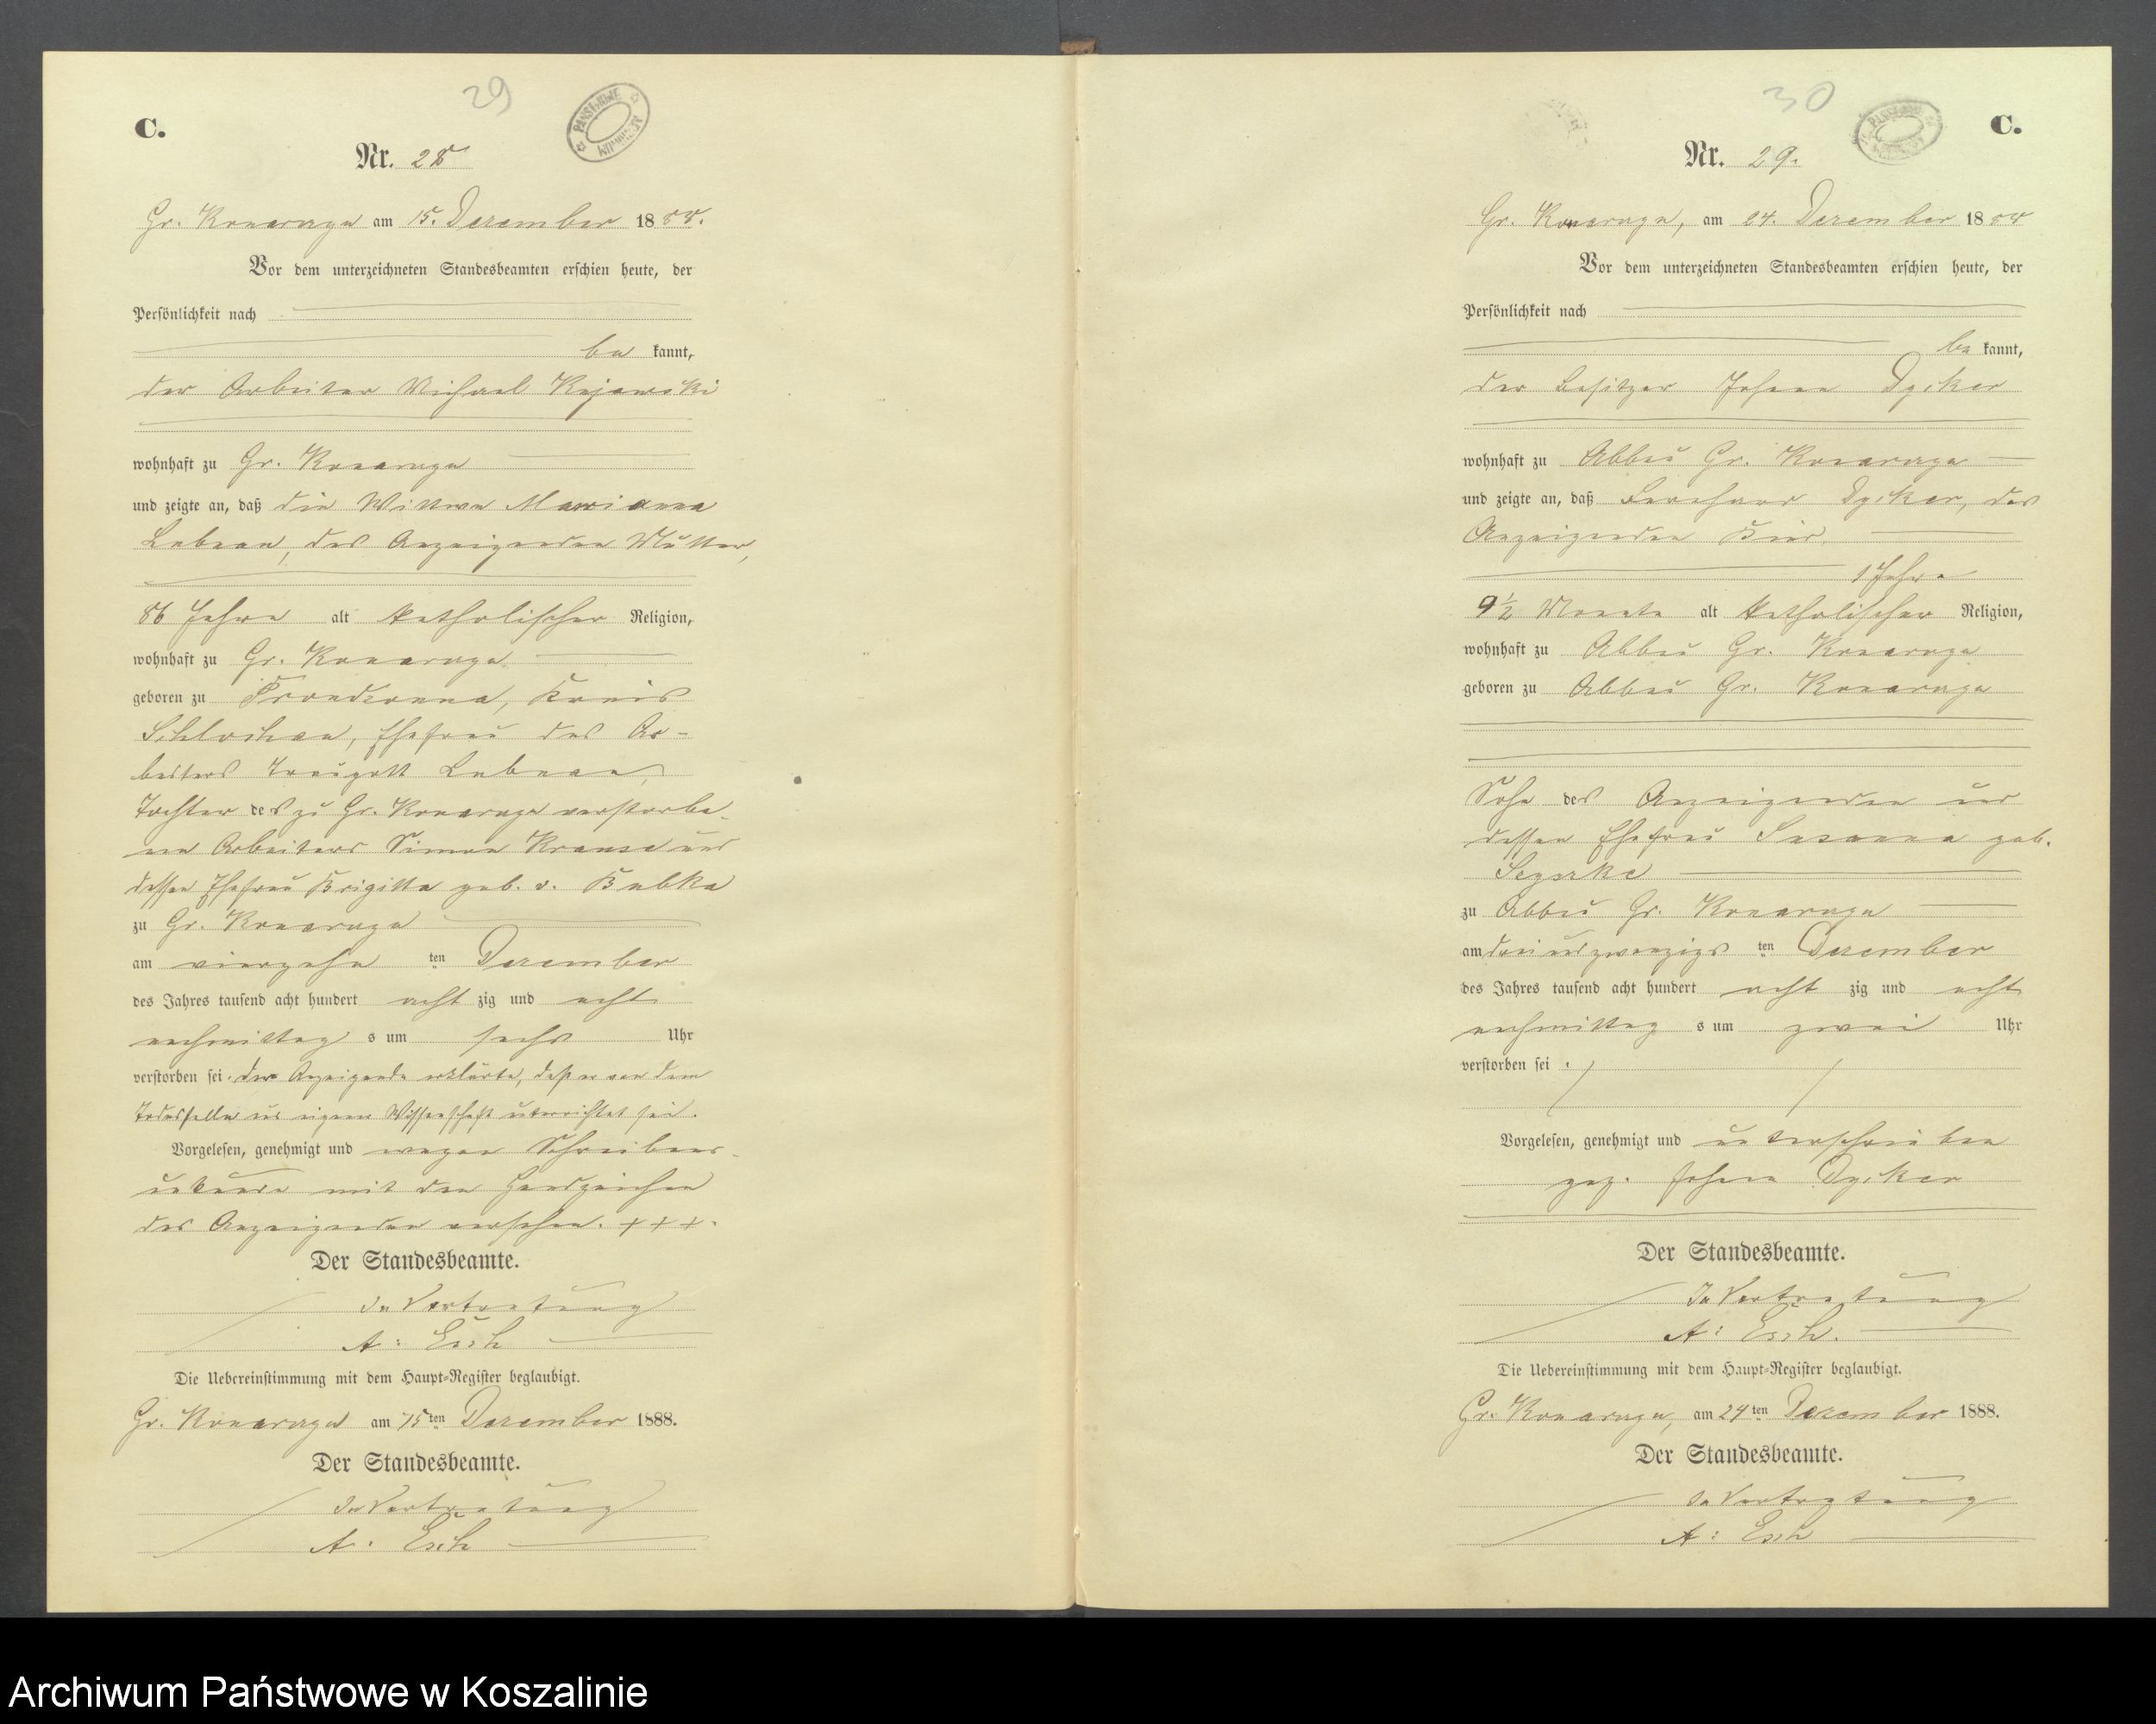 29
C.
PAŃSTWOWE ARCHIWUM
Nr. 28
Gr. Konarzyn am 15. Dezember 1888.
Vor dem unterzeichneten Standesbeamten erschien heute, der
Persönlichkeit nach
be kannt,
der Arbeiter Michael Kujawski
wohnhaft zu Gr. Konarzyn
und zeigte an, daß die Wittwe Marianna
des Anzeigenden Mutter,
86 Jahre alt katholischer Religion,
wohnhaft zu Gr. Konarzyn
geboren zu Prondzonna, Kreis
Schlochau, Ehefrau des Ar-
beiters Traugott
Tochter des zu Gr. Konarzyn verstorbe-
nen Arbeiters Simon Krause und
dessen Ehefrau Brigitta geb. v. Bubka
zu Gr. Konarzyn
am vierzehn ten Dezember
des Jahres tausend acht hundert acht zig und acht
nachmittag s um sechs Uhr
verstorben sei. Der Anzeigende erklärte, daß er von dem
Todesfalle aus eigener Wissenschaft unterrichtet sei.
Vorgelesen, genehmigt und wegen Schreibens-
unkunde mit den Handzeichen
des Anzeigenden versehen. +++.
Der Standesbeamte.
In Vertretung
A: Esch
Die Uebereinstimmung mit dem Haupt-Register beglaubigt.
Gr. Konarzyn am 15ten Dezember 1888.
Der Standesbeamte.
In Vertretung
A: Esch
30
C.
Nr. 29.
Gr. Konarzyn, am 24. Dezember 1888
Vor dem unterzeichneten Standesbeamten erschien heute, der
Persönlichkeit nach
be kannt,
der Besitzer Johann
wohnhaft zu Abbau Gr. Konarzyn
und zeigte an, daß Bernhard des
Anzeigenden Kind,
1 Jahr
9½ Monate alt katholischer Religion,
wohnhaft zu Abbau Gr. Konarzyn
geboren zu Abbau Gr. Konarzyn
Sohn des Anzeigenden und
dessen Ehefrau Susanna geb.
zu Abbau Gr. Konarzyn
am dreiundzwanzigs ten Dezember
des Jahres tausend acht hundert acht zig und acht
nachmittag s um zwei Uhr
verstorben sei.
Vorgelesen, genehmigt und unterschrieben
gez. Johann
Der Standesbeamte.
In Vertretung
A: Esch.
Die Uebereinstimmung mit dem Haupt-Register beglaubigt.
Gr. Konarzyn, am 24ten Dezember 1888.
Der Standesbeamte.
In Vertretung
A: Esch
Archiwum Państwowe w Koszalinie